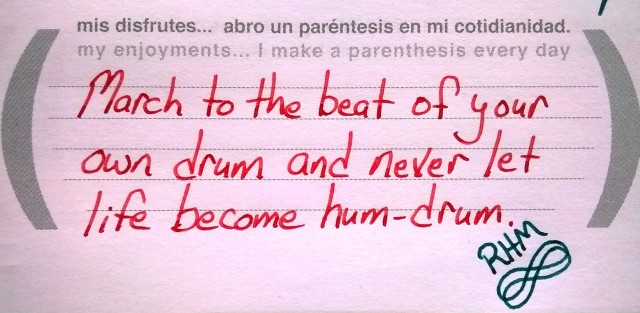 mis disfrutes... abro un paréntesis en mi cotidianidad.
my enjoyments... I make a parenthesis every day
March to the beat of your
own drum and never let
life become hum-drum.
RHM